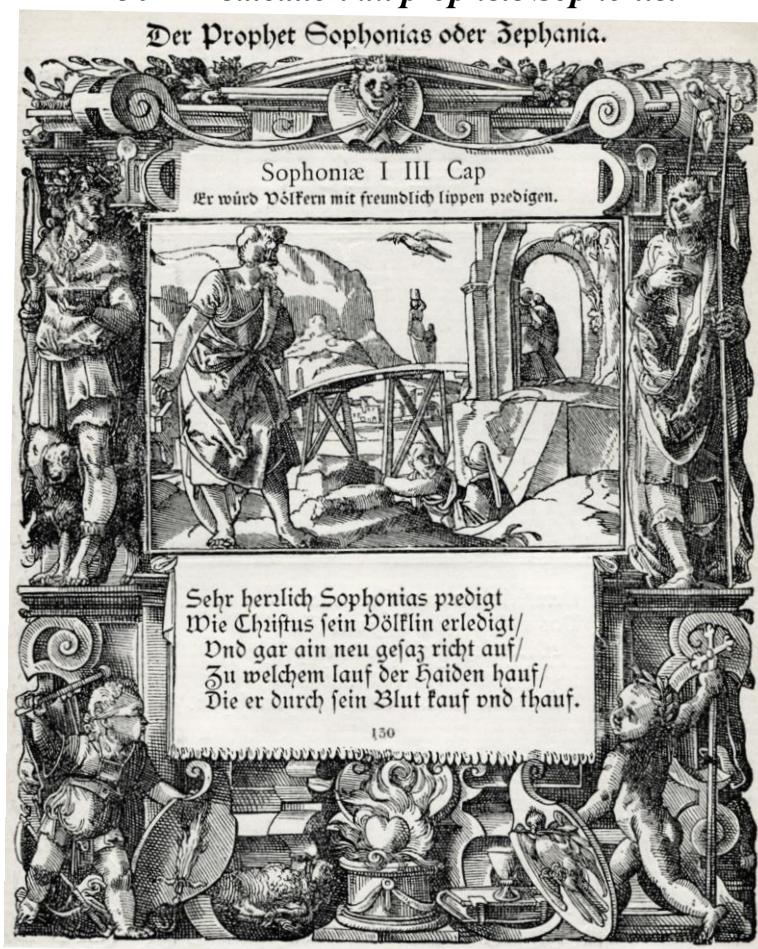 Der Prophet Sophonias oder Zephania.
Sophoniæ I III Cap
Er würd Völkern mit freundlich lippen predigen.
Sehr herrlich Sophonias predigt
Wie Christus sein Völklin erledigt/
Vnd gar ain neu gesaz richt auf/
Zu welchem lauf der Haiden hauf/
Die er durch sein Blut kauf vnd thauf.
130